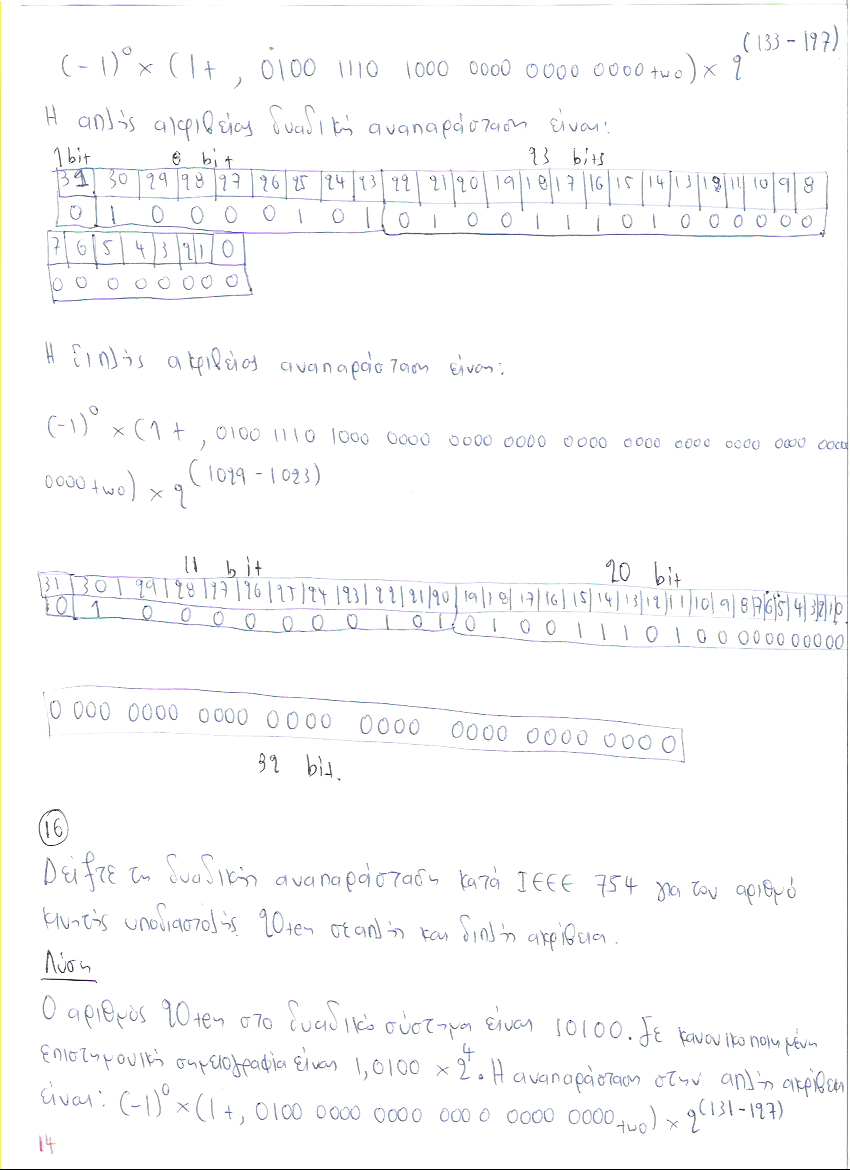 (-1)⁰ × (1+ , 0100 1110 1000 0000 0000 0000 two) × 2^(133-127)
Η απλής ακρίβειας δυαδική αναπαράσταση είναι:
1bit 8 bit 23 bits
31 30 29 28 27 26 25 24 23 22 21 20 19 18 17 16 15 14 13 12 11 10 9 8
0 1 0 0 0 0 1 0 1 0 1 0 0 1 1 1 0 1 0 0 0 0 0 0
7 6 5 4 3 2 1 0
0 0 0 0 0 0 0 0
Η διπλής ακρίβειας αναπαράσταση είναι:
(-1)⁰ × (1 + , 0100 1110 1000 0000 0000 0000 0000 0000 0000 0000 0000 0000
0000 two) × 2^(1029-1023)
11 bit 20 bit
31 30 29 28 27 26 25 24 23 22 21 20 19 18 17 16 15 14 13 12 11 10 9 8 7 6 5 4 3 2 1 0
0 1 0 0 0 0 0 0 0 1 0 1 0 1 0 0 1 1 1 0 1 0 0 0 0 0 0 0 0 0 0 0
0 000 0000 0000 0000 0000 0000 0000 0000
32 bit.
16
Δείξτε τη δυαδική αναπαράσταση κατά IEEE 754 για τον αριθμό
κινητής υποδιαστολής 20ten σε απλή και διπλή ακρίβεια.
Λύση
Ο αριθμός 20ten στο δυαδικό σύστημα είναι 10100. Σε κανονικοποιημένη
επιστημονική σημειογραφία είναι 1,0100 × 2⁴. Η αναπαράσταση στην απλή ακρίβεια
είναι: (-1)⁰ × (1+, 0100 0000 0000 0000 0000 0000 two) × 2^(131-127)
14